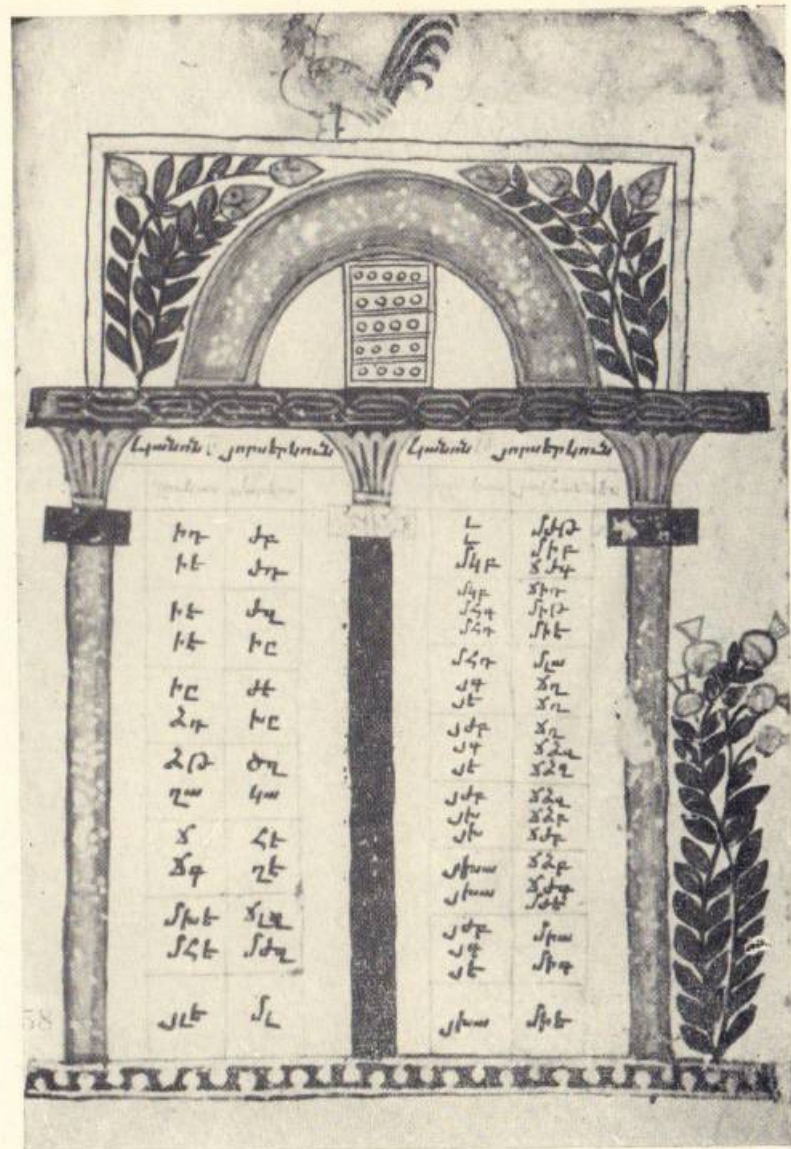 Կանոն յորս երկուն Կանոն յորս երկուն
իդ ժբ
իե ժդ
իէ ժզ
իէ իը
իը ժէ
ձդ խը
ձթ ծզ
ղա կա
ճ հե
ճգ ղէ
մխէ ճլզ
մհէ մժզ
յլե մլ
լ մժթ
լ միբ
մկբ ճժգ
մկբ ճիդ
մհդ միթ
մհդ միէ
մհդ մլա
յգ ճղ
յէ ճղ
յժբ ճղ
յգ ճձզ
յէ ճձզ
յժբ ճձզ
յխ ճձբ
յխ ճժբ
յխա ճձբ
յխա ճժգ
մժէ
յժբ միա
յգ
յէ միգ
յխա միե